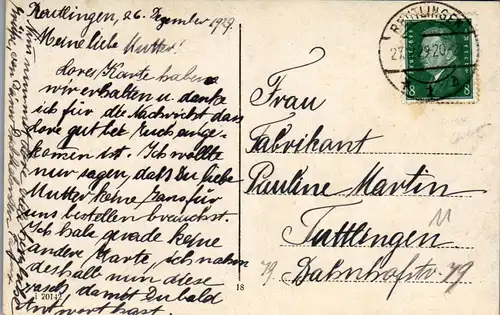 Reutlingen, 26. Dezember 1929.
Meine liebe Mutter!
Lores Karte haben
wir erhalten u. danke
ich für die Nachricht das
Lore gut bei Euch ange-
kommen ist. Ich wollte
nur sagen, daß Du liebe
Mutter keine Gans für
uns bestellen brauchst.
Ich habe gerade keine
andere Karte, ich nahm
deshalb nun diese
rasch, damit Du bald
Antwort hast.
REUTLINGEN
DEUTSCHES REICH
8 8
Frau
Fabrikant
Pauline Martin
Tuttlingen
Bahnhofstr. 79
79
11
18